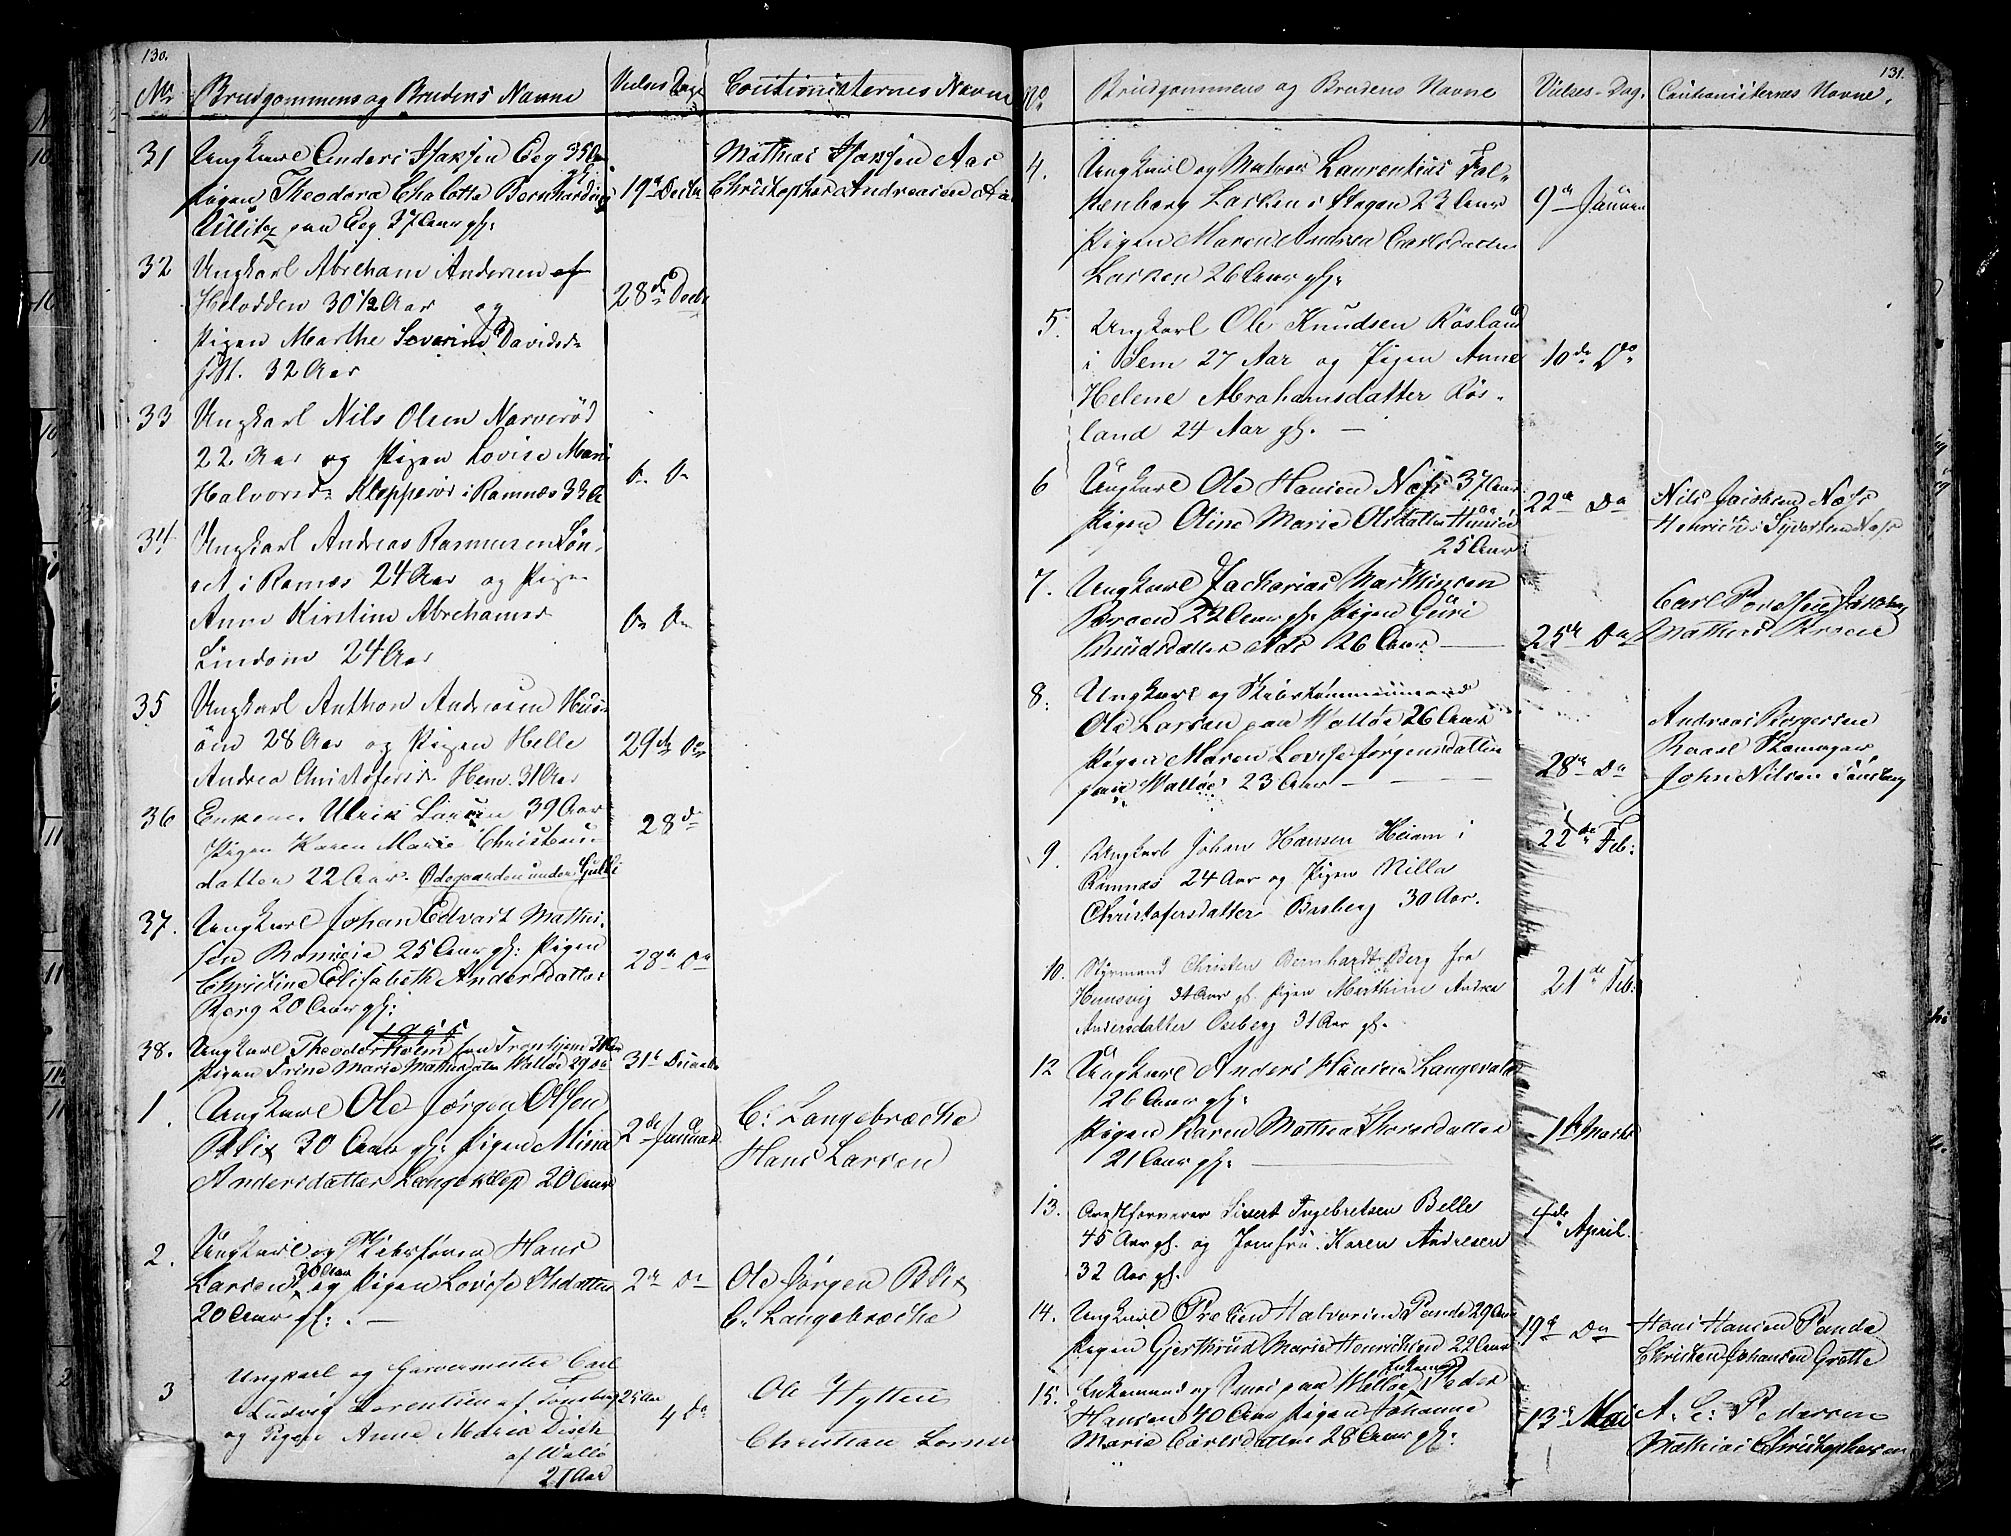 130.
No Brudgommens og Brudens Navne Vielses Dage Coutionisternes Navne
31 Ungkarl Anders Isaksen Eeg 35 Aar Mathias Isaksen Aas
Pigen Theodora Chalotte Bernhardine 19de Decbr Christopher Andreasen
Ullitz paa Eeg 37 Aar gl:
32 Ungkarl Abreham Andersen af
Helvodden 30 1/2 Aar og 28de Decbr
Pigen Marthe Severine Davidsd:
32 Aar
33 Ungkarl Nils Olsen Narverød
22 Aar og Pigen Lovise Mari
Halvorsd: Klopperød i Ramnæs 33 A Do Do
34 Ungkarl Andreas Rasmussen Løn-
set i Ramnæs 24 Aar og Pigen
Anne Kirstine Abrehamsd Do Do
Lindom 24 Aar
35 Ungkarl Anthon Andresen Hus-
øen 28 Aar og Pigen Helle 29de Do
Andrea Christofersd. Hem 31 Aar
36 Enkem. Ulrik Larsen 39 Aar 28de
Pigen Karen Marie Christens-
datter 22 Aar. Ødegaarden under Gulli
37. Ungkarl Johan Edvart Mathi-
sen 25 Aar gl: Pigen 28de Do
Christine Elisabeth Andersdatter
Berg 20 Aar gl:
1855
38. Ungkarl Theodor Holm fra Tronhjem 31 Aar 31te December
Pigen Trine Marie Mathisdatter Valløe 29 Do
1. Ungkarl Ole Jørgen Olsen C: Langebræcke
Blix 30 Aar gl: Pigen Mina 2de Januar Hans Larsen
Andersdatter Langeklep 20 Aar
2. Ungkarl og Skibsfører Hans
30 Aar
Larsen og Pigen Lovise Olsdatter 2de Do Ole Jørgen Blix
20 Aar gl: C. Langebræcke
3 Ungkarl og Garvermester Carl
Ludvig Lorentsen af Tønsberg 25 Aar Ole Hytten
og Pigen Anne Maria Disch 4 Do Christian
af Vallø
21 Aar
131.
No Brudgommens og Brudens Navne Vielses-Dag. Cautionisternes Navne.
4. Ungkarl og Matros Laurentius Fal-
kenborg Larsen i Skagen 23 Aar 9de Januar
Pigen Maren Andrea Carlsdatter
Larsen 26 Aar gl:
5. Ungkarl Ole Knudsen Røsland
i Sem 27 Aar og Pigen Anne 10de Do
Helene Abrahamsdatter Røs-
land 24 Aar gl.
6 Ungkarl Ole Hansen Næss 37 Aar Nils Jacobsen Næss
Pigen Oline Marie Olsdatter Husøe 22de Do Henrich Syvertsen Næss
25 Aar
7. Ungkarl Zacharias Marthinsen
Braaen 22 Aar gl: Pigen Guri Carl
Knudsdatter Aas 26 Aar 25de Do Mathias Braaen
8. Ungkarl og Skibstømmermand
Ole Larsen paa Walløe 26 Aar Andreas Borgersen
Pigen Maren Lovise Jørgensdatter Raael
paa Walløe 23 Aar 28de Do John Nilsen Tønsberg
9. Ungkarl Johan Hansen Heiam i 22de Feb:
Ramnæs 24 Aar og Pigen Nilla
Christofersdatter Basberg 30 Aar.
10. Styrmand Christen Bernhardt Berg fra
Hunsvig 31 Aar gl. Pigen Marthine Andrea 21de Feb:
Andersdatter Oseberg 31 Aar gl.
12 Ungkarl Anders Hansen
26 Aar gl:
Pigen Karen Mathea Thorsdatter 1ste Marts
21 Aar gl:
13. Arestforvarer Sivert Ingebretsen Belle 4de April.
45 Aar gl. og Jomfru Karen Andresen
32 Aar gl.
14. Ungkarl Preben Halvorsen Panda 29 Aar Hans Hansen Panda
Pigen Gjerthrud Marie Henrichsen 22 Aar 19de Do Christen Johansen Grette
15. Enkemand og Smed paa Walløe Peder
Hansen 40 Aar Pigen Johanne 13de Mai A. C: Pedersen
Marie Carlsdatter 28 Aar gl: Mathias Christophersen